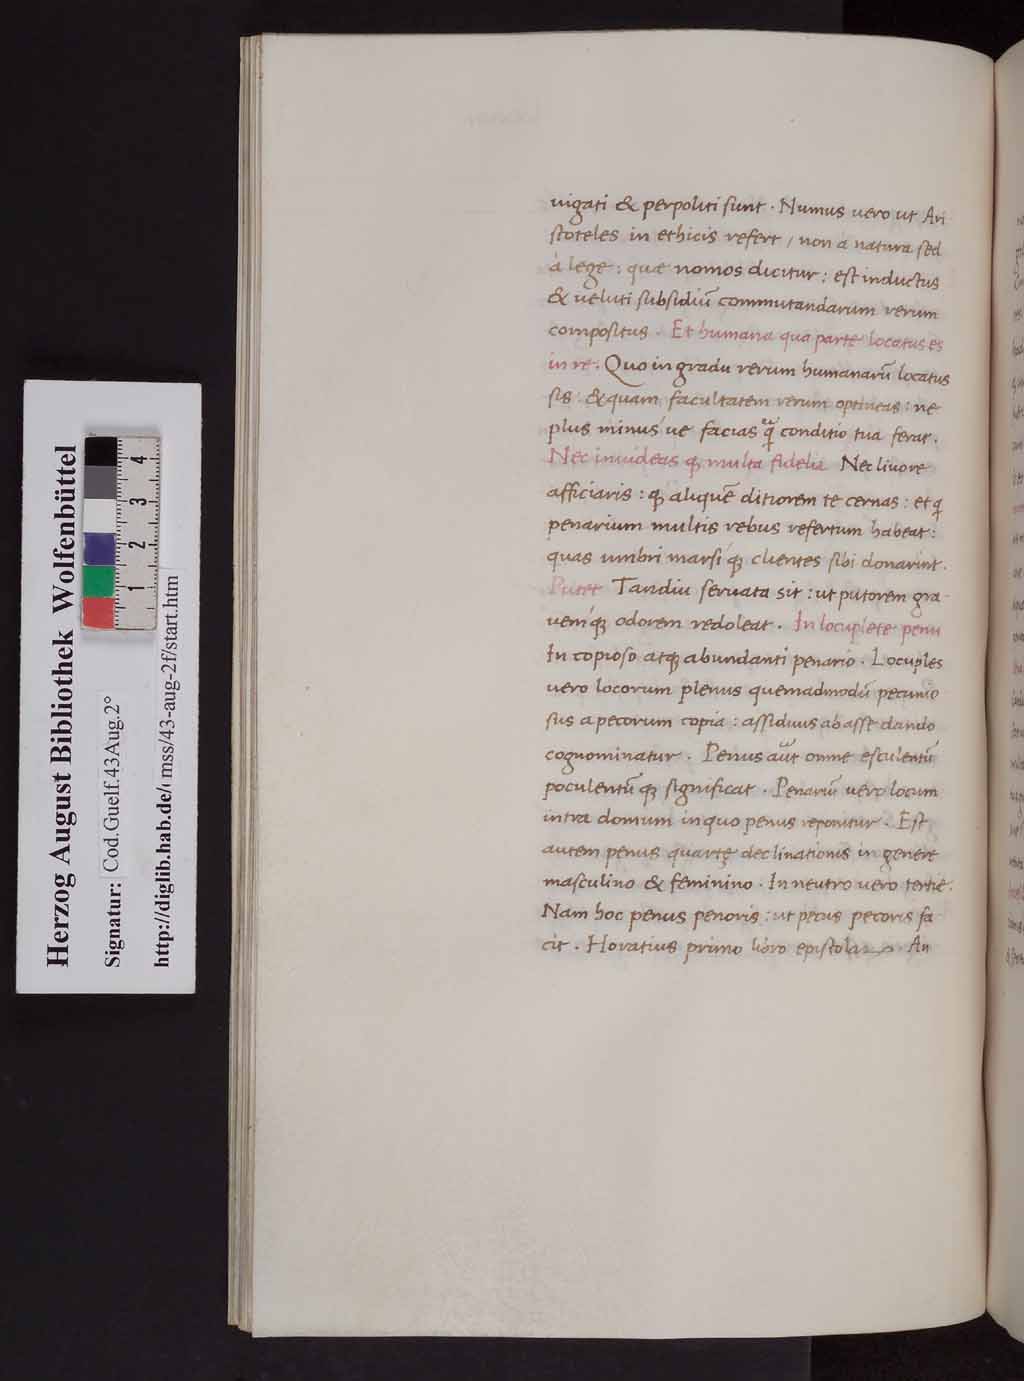 uigati & perpoliti sunt . Numus uero ut Ari
stoteles in ethicis refert / non a natura sed
a lege : quae nomos dicitur : est inductus
& ueluti subsidiū commutandarum rerum
compositus . Et humana qua parte locatus es
in re . Quo in gradu rerum humanarū locatus
sis : & quam facultatem rerum optineas : ne
plus minus ue facias q̃ conditio tua ferat .
Nec inuideas ꝙ multa fidelia Nec liuore
afficiaris : ꝙ aliquē ditiorem te cernas : et ꝗ
penarium multis rebus refertum habeat :
quas umbri marsi qꝫ clientes sibi donarint .
Putet Tandiu seruata sit : ut putorem gra
uem qꝫ odorem redoleat . In locuplete penu
In copioso atqꝫ abundanti penario . Locuples
uero locorum plenus quemadmodū pecunio
sus a pecorum copia : assiduus ab asse dando
cognominatur . Penus aūt omne esculentū
poculentū qꝫ significat . Penariū uero locum
intra domum in quo penus reponitur . Est
autem penus quartę declinationis in genere
masculino & feminino . In neutro uero tertiē .
Nam hoc penus penoris : ut pecus pecoris fa
cit . Horatius primo libro epistolaꝝ An
Herzog August Bibliothek Wolfenbüttel
Signatur: Cod.Guelf.43Aug.2°
http://diglib.hab.de/ mss/43-aug-2f/start.htm
1 2 3 4